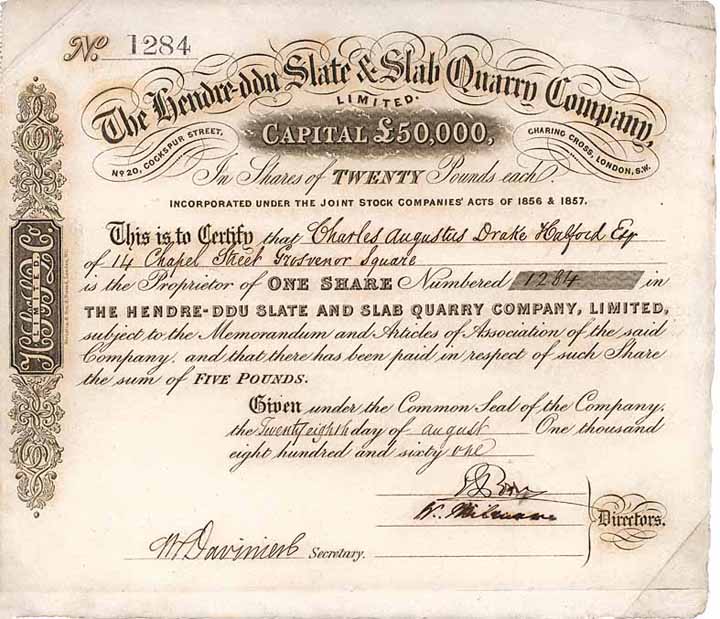 No. 1284
The Hendre-ddu Slate & Slab Quarry Company,
LIMITED.
CAPITAL £50,000,
No 20, COCKSPUR STREET,
CHARING CROSS, LONDON, S.W.
In Shares of TWENTY Pounds each.
INCORPORATED UNDER THE JOINT STOCK COMPANIES' ACTS OF 1856 & 1857.
This is to Certify that Charles Augustus Drake Halford Esq
of 14 Chapel Street Grosvenor Square
is the Proprietor of ONE SHARE Numbered 1284 in
THE HENDRE-DDU SLATE AND SLAB QUARRY COMPANY, LIMITED,
subject to the Memorandum and Articles of Association of the said
Company, and that there has been paid in respect of such Share
the sum of FIVE POUNDS.
Given under the Common Seal of the Company,
the Twenty eighth day of august One thousand
eight hundred and sixty one
Directors.
Secretary.
LIMITED.